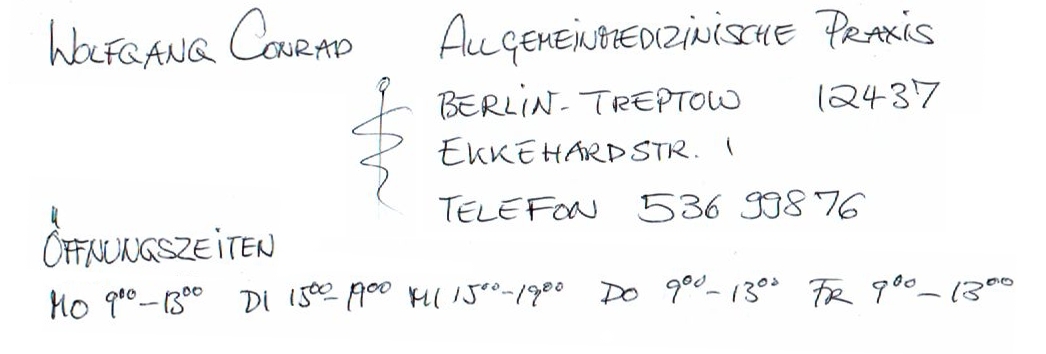 Wolfgang Conrad Allgemeinmedizinische Praxis
Berlin-Treptow 12437
Ekkehardstr. 1
Telefon 536 99876
Öffnungszeiten
Mo 9⁰⁰–13⁰⁰ Di 15⁰⁰–19⁰⁰ Mi 15⁰⁰–19⁰⁰ Do 9⁰⁰–13⁰⁰ Fr 9⁰⁰–13⁰⁰